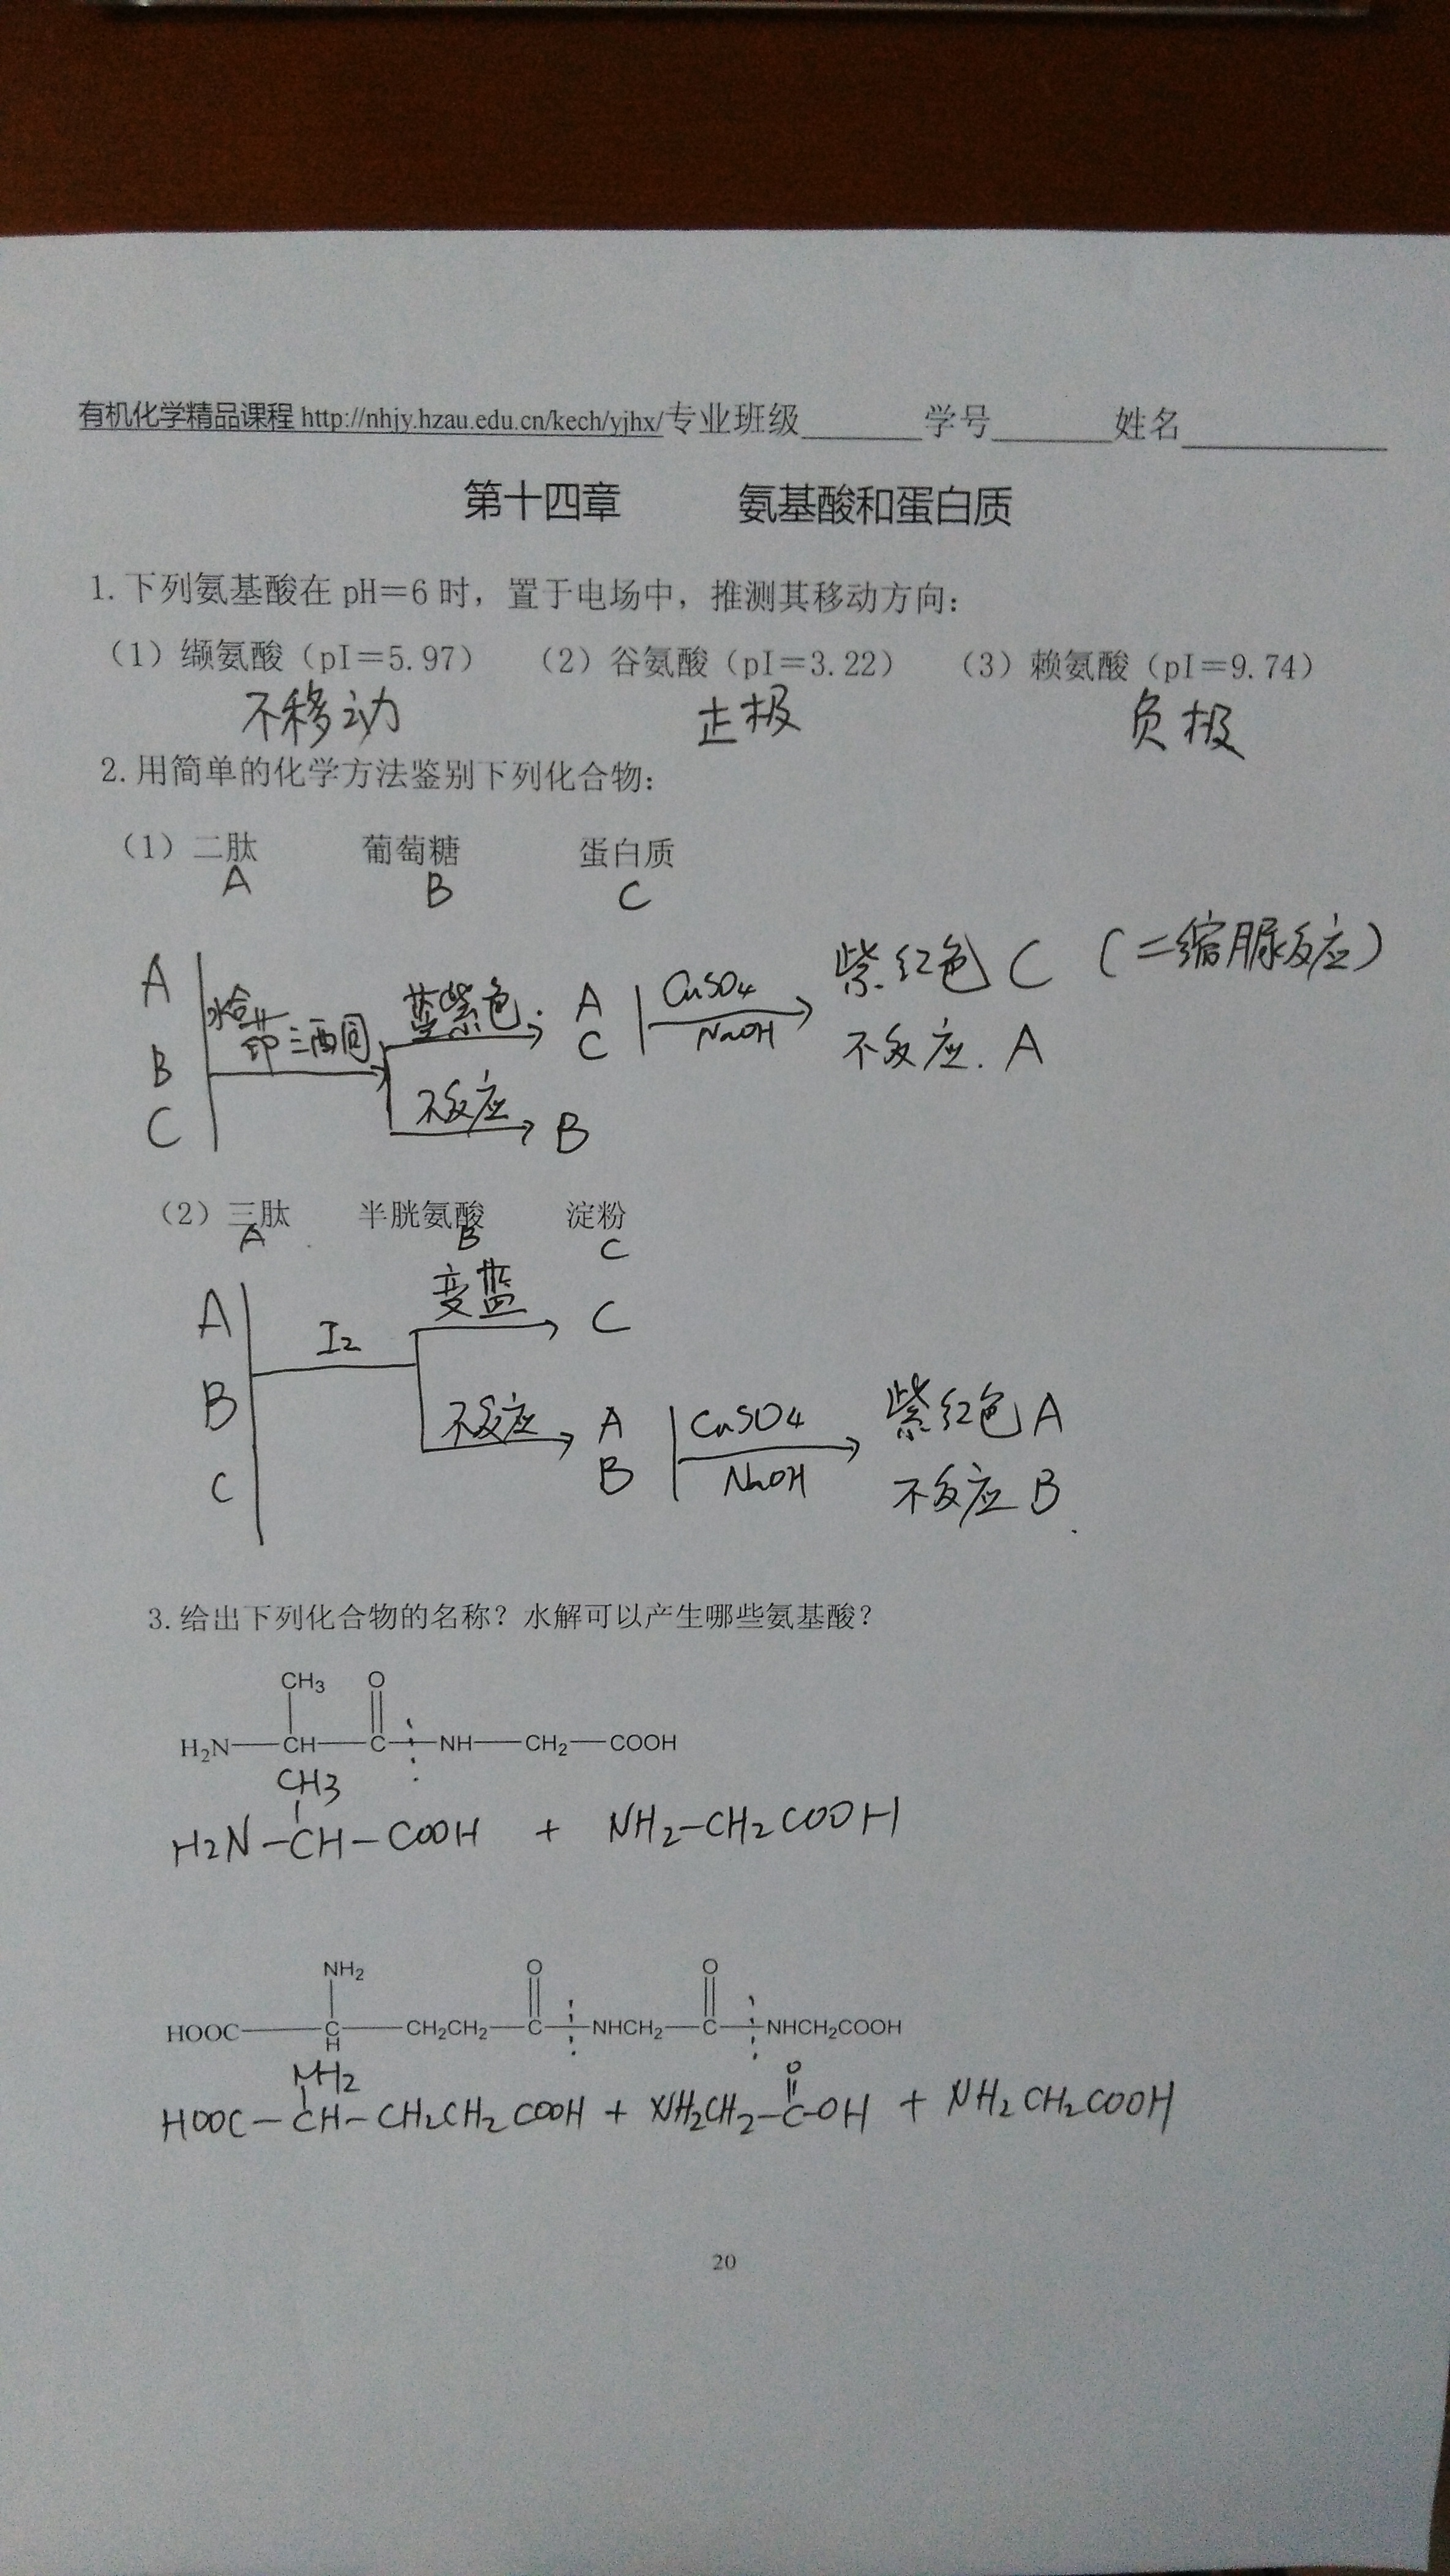 有机化学精品课程 http://nhjy.hzau.edu.cn/kech/yjhx/ 专业班级______学号______姓名__________
第十四章 氨基酸和蛋白质
1. 下列氨基酸在 pH＝6 时，置于电场中，推测其移动方向：
（1）缬氨酸（pI＝5.97） （2）谷氨酸（pI＝3.22） （3）赖氨酸（pI＝9.74）
不移动 正极 负极
2. 用简单的化学方法鉴别下列化合物：
（1）二肽 葡萄糖 蛋白质
A B C
A
B
C
水合茚三酮
蓝紫色. A
C
CuSO4
NaOH
紫红色 C （二缩脲反应）
不反应. A
不反应 B
（2）三肽 半胱氨酸 淀粉
A B C
A
B
C
I2
变蓝 C
不反应 A
B
CuSO4
NaOH
紫红色 A
不反应 B.
3. 给出下列化合物的名称？水解可以产生哪些氨基酸？
CH3 O
H2N—CH—C—NH—CH2—COOH
CH3
H2N-CH-COOH + NH2-CH2COOH
NH2 O O
HOOC—C—CH2CH2—C—NHCH2—C—NHCH2COOH
H
NH2 O
HOOC-CH-CH2CH2COOH + NH2CH2-C-OH + NH2CH2COOH
20